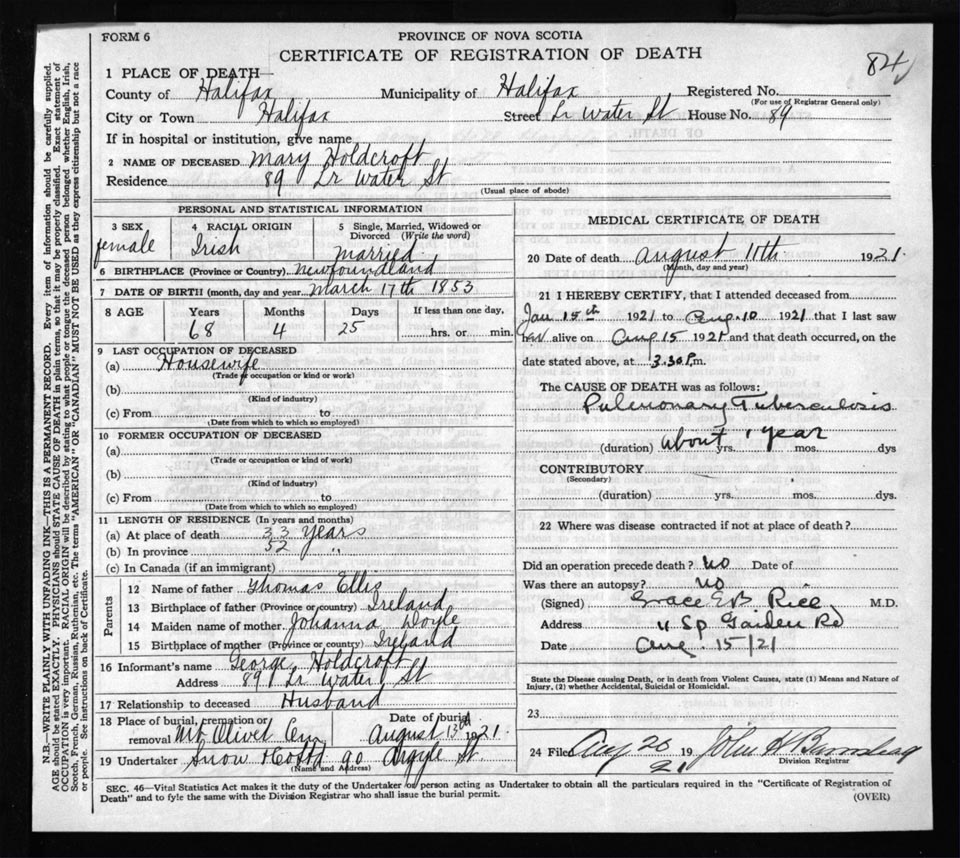 FORM 6
PROVINCE OF NOVA SCOTIA
CERTIFICATE OF REGISTRATION OF DEATH
84
1 PLACE OF DEATH—
County of Halifax Municipality of Halifax Registered No.
(For use of Registrar General only)
City or Town Halifax Street Lr Water St House No. 89
If in hospital or institution, give name
2 NAME OF DECEASED Mary Holdcroft
Residence 89 Lr Water St
(Usual place of abode)
PERSONAL AND STATISTICAL INFORMATION
3 SEX female
4 RACIAL ORIGIN Irish
5 Single, Married, Widowed or Divorced (Write the word) Married
6 BIRTHPLACE (Province or Country) Newfoundland
7 DATE OF BIRTH (month, day and year) March 17th 1853
8 AGE Years Months Days If less than one day,
68 4 25 hrs. or min.
9 LAST OCCUPATION OF DECEASED
(a) Housewife
(Trade or occupation or kind of work)
(b)
(Kind of industry)
(c) From to
(Date from which to which so employed)
10 FORMER OCCUPATION OF DECEASED
(a)
(Trade or occupation or kind of work)
(b)
(Kind of industry)
(c) From to
(Date from which to which so employed)
11 LENGTH OF RESIDENCE (In years and months)
(a) At place of death 33 Years
(b) In province 52 "
(c) In Canada (if an immigrant)
Parents
12 Name of father Thomas Ellis
13 Birthplace of father (Province or country) Ireland
14 Maiden name of mother Johanna Doyle
15 Birthplace of mother (Province or country) Ireland
16 Informant's name George Holdcroft
Address 89 Lr Water St
17 Relationship to deceased Husband
18 Place of burial, cremation or removal Mt Olivet Cem Date of burial August 13th 1921.
19 Undertaker Snow 90 Argyle St.
(Name and Address)
MEDICAL CERTIFICATE OF DEATH
20 Date of death August 11th 1921.
(Month, day and year)
21 I HEREBY CERTIFY, that I attended deceased from
Jan 15th 1921 to Aug. 10 1921 that I last saw
her alive on Aug 15 1921 and that death occurred, on the
date stated above, at 3.30 P.m.
The CAUSE OF DEATH was as follows:
Pulmonary Tuberculosis
(duration) about 1 year yrs. mos. dys
CONTRIBUTORY
(Secondary)
(duration) yrs. mos. dys.
22 Where was disease contracted if not at place of death?
Did an operation precede death? no Date of
Was there an autopsy? no
(Signed) Grace E B Rice M.D.
Address Sp Garden Rd
Date Aug. 15/21
State the Disease causing Death, or in death from Violent Causes, state (1) Means and Nature of
Injury, (2) whether Accidental, Suicidal or Homicidal.
23
24 Filed Aug 20 1921 John
Division Registrar
SEC. 46—Vital Statistics Act makes it the duty of the Undertaker or person acting as Undertaker to obtain all the particulars required in the "Certificate of Registration of
Death" and to fyle the same with the Division Registrar who shall issue the burial permit.
(OVER)
N.B.—WRITE PLAINLY WITH UNFADING INK—THIS IS A PERMANENT RECORD. Every item of information should be carefully supplied.
AGE should be stated EXACTLY. PHYSICIANS should STATE CAUSE OF DEATH in plain terms, so that it may be properly classified. Exact statement of
OCCUPATION is very important. RACIAL ORIGIN will be described by stating to what people or tongue the deceased person belonged whether English, Irish,
Scotch, French, German, Russian, Ruthenian, etc. The terms "AMERICAN" OR "CANADIAN" MUST NOT BE USED as they express citizenship but not a race
or people. See instructions on back of Certificate.